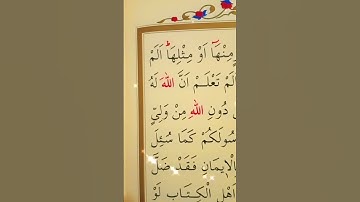 مِنْهَٓا اَوْ مِثْلِهَاۜ اَلَمْ
اَلَمْ تَعْلَمْ اَنَّ اللّٰهَ لَهُ
دُونِ اللّٰهِ مِنْ وَلِيٍّ
رَسُولَكُمْ كَمَا سُئِلَ
بِالْا۪يمَانِ فَقَدْ ضَلَّ
اَهْلِ الْكِتَابِ لَوْ